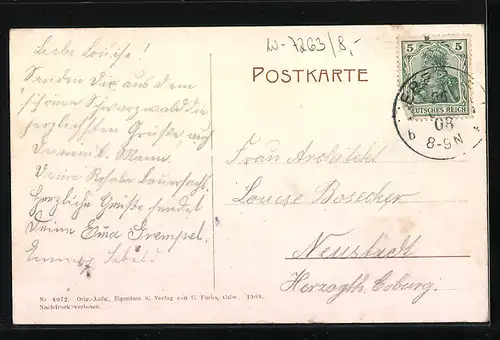 Liebe Louise!
Senden Dir aus dem
schönen Schwarzwald die
herzlichsten Grüße, auch
Deinem l. Mann.
Deine Rosala
Herzliche Grüße sendet
Deine Ema Grempel.
w-7263/8,-
POSTKARTE
5 5
DEUTSCHES REICH
08
b 8-9N
Frau Architekt
Louise Bosecker
Neustadt
Herzogth. Coburg.
Nr. 4672. Orig.-Aufn., Eigentum u. Verlag von C. Fuchs, Calw. 1908.
Nachdruck verboten.